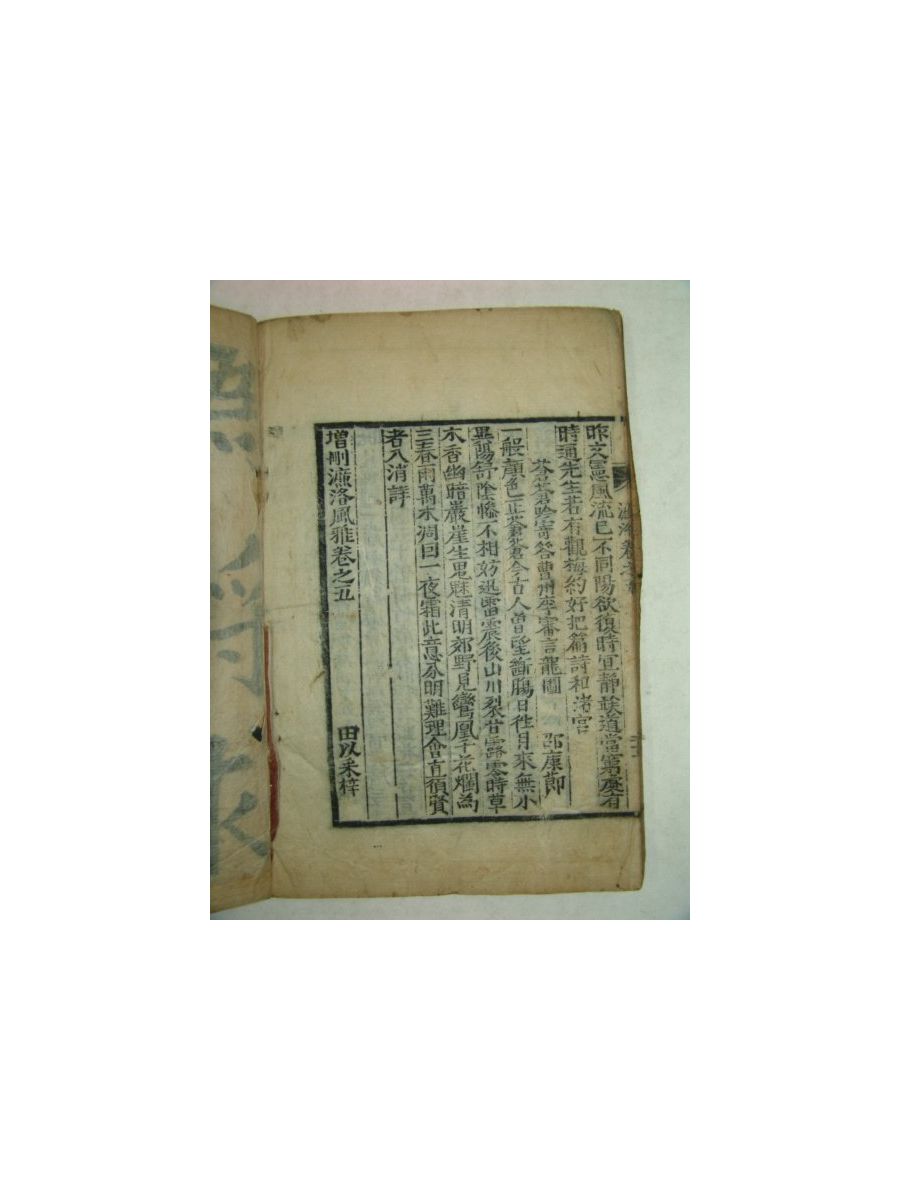 昨文憲風流已不同陽欲復時宜靜候道當窮處有
時通先生若有觀梅約好把篇詩和渚宮
蒼蒼吟寄答曹州李審言龍圖　邵康節
一般顏色正蒼蒼今古人曾望斷腸日往月來無少
異陽舒陰慘不相妨迅雷震後山川裂甘露零時草
木香幽暗巖崖生鬼魅清明郊野見鸞凰千花爛為
三春雨萬木凋因一夜霜此意分明難理會直須賢
者入消詳
增刪濂洛風雅卷之五　田以采梓